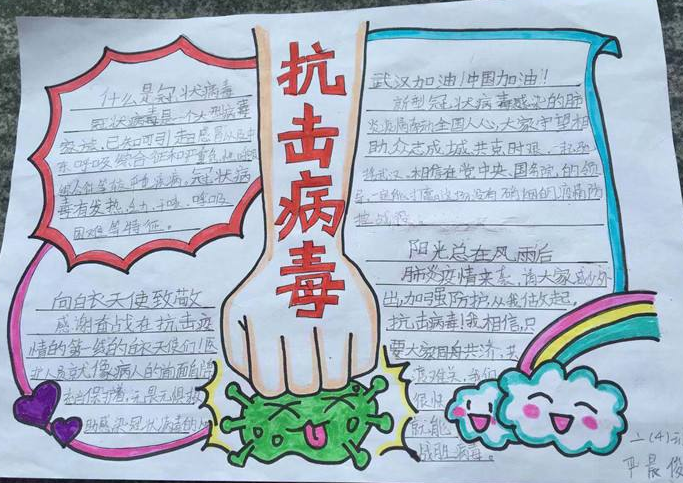 抗击病毒
什么是冠状病毒
冠状病毒是一个大型病毒
家族,已知可引起感冒以及中
东呼吸综合征和严重急性呼吸
毒有发热、乏力、干咳、呼吸
困难等特征。
向白衣天使致敬
感谢奋战在抗击疫
情的第一线的白衣天使们!医
护人员就像病人的前面
助感染冠状病毒的
武汉加油!中国加油!
新型冠状病毒感染的肺
炎疫情牵动全国人心,大家守望相
助,众志成城,共克时艰,一起
武汉,相信在党中央、国务院,的领
导,一定能打赢这场没有硝烟的疫情防
控战役。
阳光总在风雨后
肺炎疫情来袭,请大家减少外
出,加强防护从我做起,
抗击病毒!我相信,只
要大家同舟共济,共
度难关,我们
很快
就能
战胜病毒。
二(4)